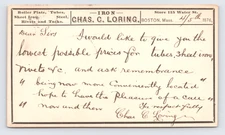 Boiler Plate, Tubes,
Sheet Iron,
Rivets and Tanks.
IRON
Steel,
CHAS. C. LORING,
BOSTON, Mass.
Dear Sirs
I would like to give you the
lowest possible prices for tubes, sheet iron
rivets &c. and ask remembrance
"being now more conveniently located"
hope to have the pleasure of a call
now and then
Respectfully
Chas C. Loring